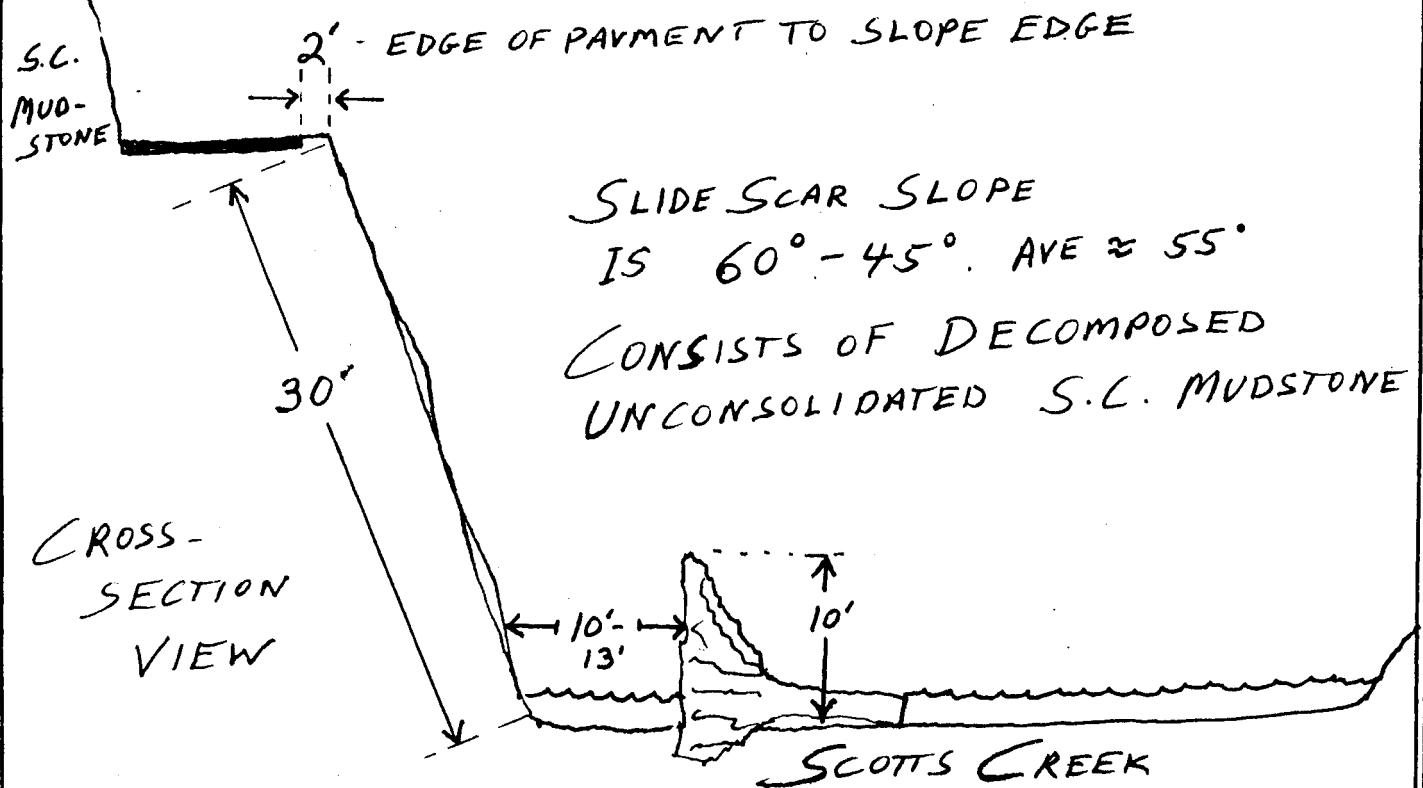 2' - EDGE OF PAVMENT TO SLOPE EDGE
S.C.
MUD-
STONE
SLIDE SCAR SLOPE
IS 60° - 45°. AVE ≈ 55°
CONSISTS OF DECOMPOSED
UNCONSOLIDATED S.C. MUDSTONE
30'
CROSS-
SECTION
VIEW
10'-
13'
10'
SCOTTS CREEK